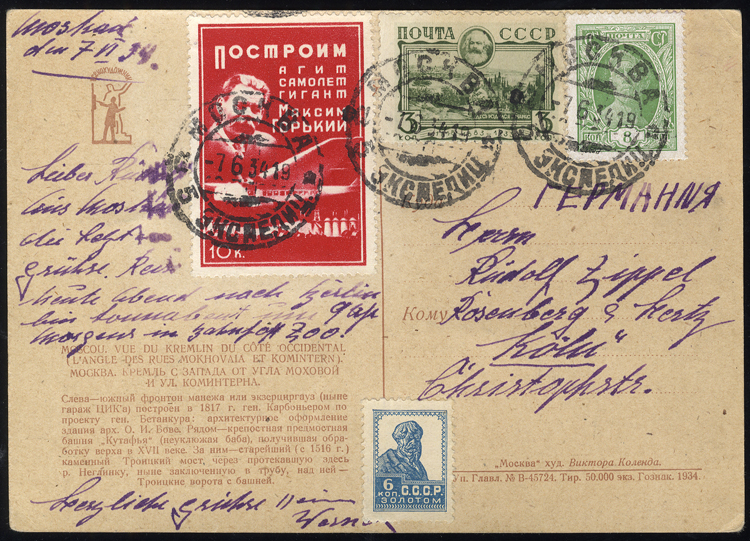 Moskau
den 7 VI 34.
ПОСТРОИМ
АГИТ
САМОЛЕТ
ГИГАНТ
Максим
ГОРЬКИЙ
10 К.
ПОЧТА СССР
3 3
КОП.
ПОЧТА
КОП. 8
МОСКВА
-7 6 34 19
ЭКСПЕДИЦ.
МОСКВА
ЭКСПЕДИЦ.
МОСКВА
-7 6 34 19
ЭКСПЕДИЦ.
Lieber
aus Mosk
die
Grühse.
heute Abend nach Berlin
bin
morgens in Bahnhof Zoo!
ГЕРМАНИЯ
Herrn
Rudolf Zippel
Кому Rosenberg & Hertz
Köln
Christophstr.
MOSCOU. VUE DU KREMLIN DU CÔTÉ OCCIDENTAL
(L'ANGLE DES RUES MOKHOVAIA ET KOMINTERN).
МОСКВА. КРЕМЛЬ С ЗАПАДА ОТ УГЛА МОХОВОЙ
И УЛ. КОМИНТЕРНА.
Слева—южный фронтон манежа или экзерциргауз (ныне
гараж ЦИК'а) построен в 1817 г. ген. Карбоньером по
проекту ген. Бетанкура: архитектурное оформление
здания арх. О. И. Бове. Рядом—крепостная предмостная
башня „Кутафья" (неуклюжая баба), получившая обра-
ботку верха в XVII веке. За ним—старейший (с 1516 г.)
каменный Троицкий мост, через протекавшую здесь
р. Неглинку, ныне заключенную в трубу, над ней—
Троицкие ворота с башней.
6
КОП.
С.С.С.Р.
ЗОЛОТОМ
„Москва" худ. Виктора Коленда.
Уп. Главл. № В-45724. Тир. 50.000 экз. Гознак. 1934.
Herzliche Grühse Dein
Werner